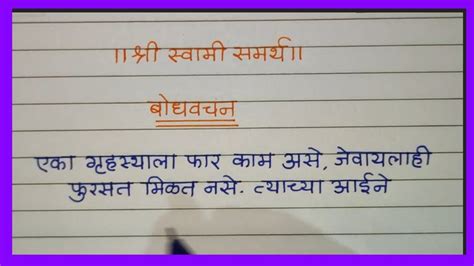 ।।श्री स्वामी समर्थ।।
बोधवचन
एका गृहस्थाला फार काम असे, जेवायलाही
फुरसत मिळत नसे. त्याच्या आईने